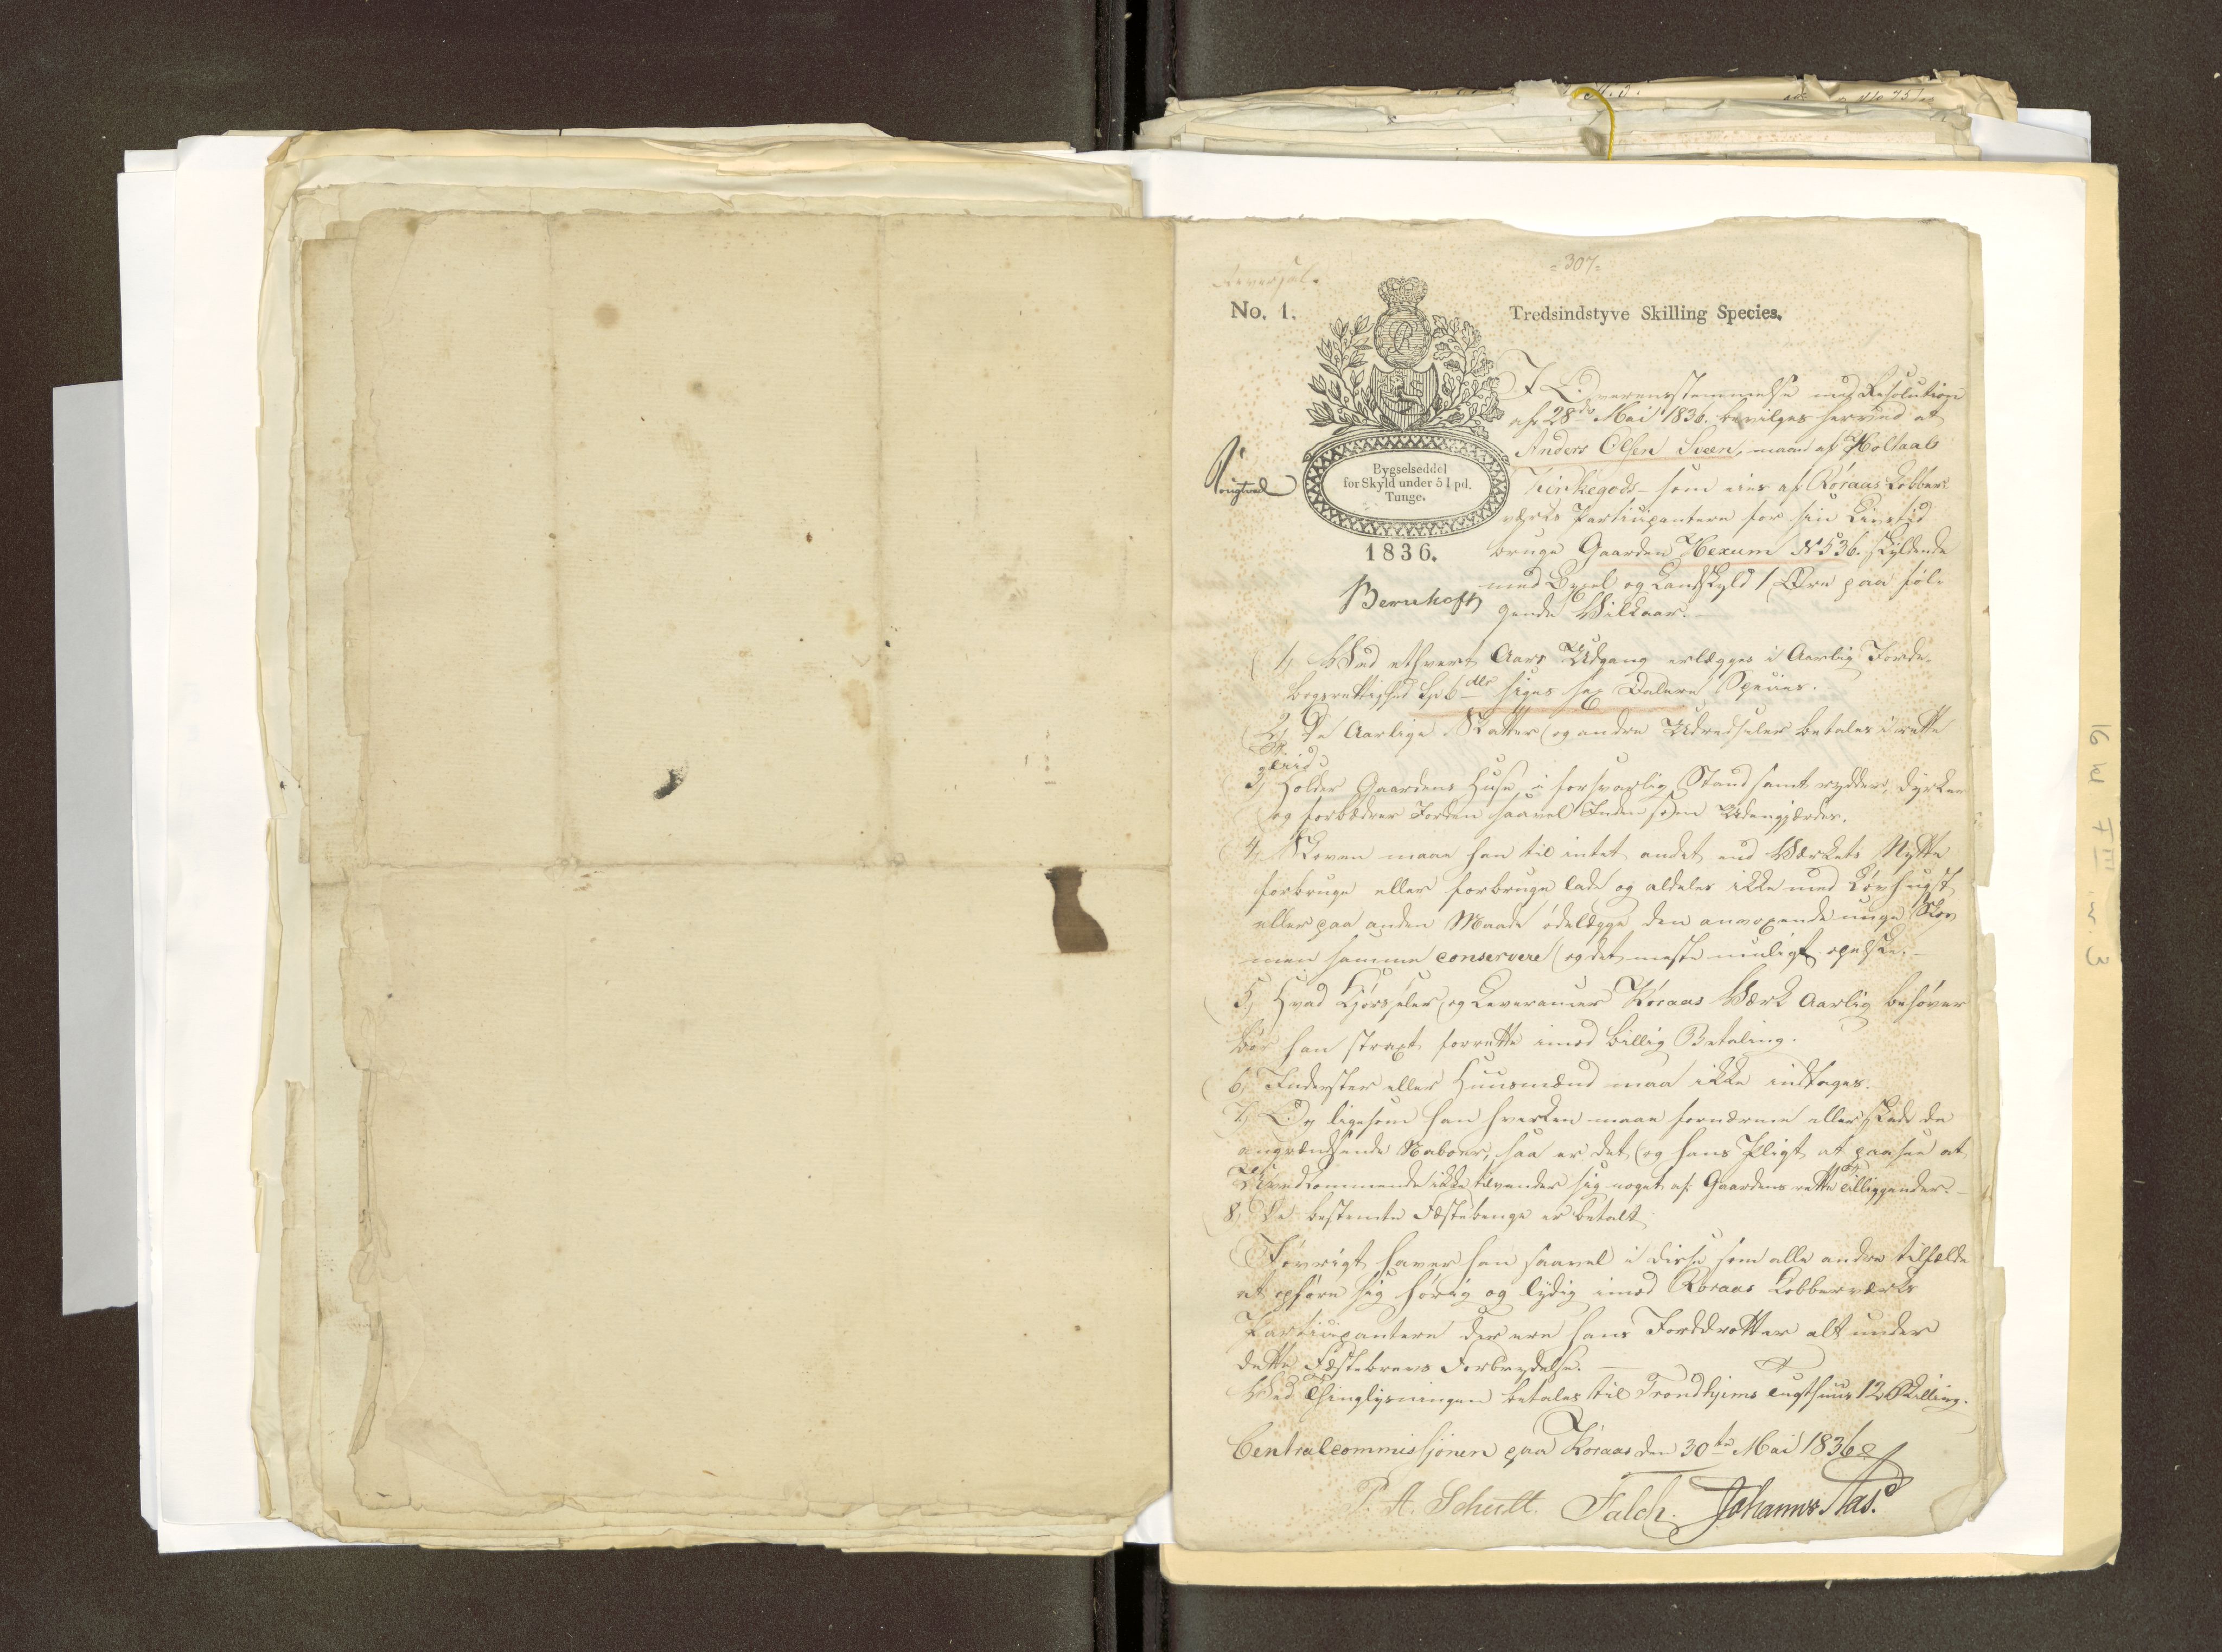 =307=
No. 1.
Tredsindstyve Skilling Species.
Bygselseddel
for Skyld under 5 1 pd.
Tunge.
1836.
Bernhoft
I Overensstemmelse med Resolution
af 28de Mai 1836. bevilges herved at
Anders Olsen Sveen, maae af Holtaals
Kirkegods – som eies af Röraas Kobber
værks Participantere for sin Livstid
bruge Gaarden Hexum No 536. skyldende
med Bygsel og Landskyld 1 Øre paa föl-
gende Vilkaar. –
1, Ved ethvert Aars Udgang erlægges i Aarlig Jorde-
bogsrettighed Sp 6 dlr siges sex Dalere Species.
2, De Aarlige Skatter og andre Udredseler betales i rette
Tiid
3, Holder Gaardens Huse i forsvarlig Stand samt rydder, dyrker
og forbedrer Jorden saavel Inden som Udengjærdes.
4, Skoven maae han til intet andet end Værkets Nytte
forbruge eller forbruge lade og aldeles ikke med Lövhugst
eller paa anden Maade ödelægge den anvoxende unge Skov
men samme conservere og det meste muligt opelske. –
5, Hvad Kjörseler og Leverancer Röraas Værk Aarlig behöver
bör han strax forrette imod billig Betaling.
6, Inderster eller Huusmænd maa ikke indtages.
7, Og ligesom han hverken maae fornærme eller skade de
angrændsende Naboer, saa er det og hans Pligt at paasee at
Uvedkommende ikke tilvender sig noget af Gaardens rette Tilliggender. –
8, De bestemte Fæstebenge er betalt
Iövrigt haver han saavel i disse som alle andre tilfælde
at opföre sig hörig og lydig imod Röraas Kobberværks
Participantere der ere hans Jorddrotter alt under
dette Fæstebrevs Forbrydelse. –
Ved Thinglysningen betales til Trondhjems Tugthuus 12 Skilling.
Centralcommissjonen paa Röraas den 30te Mai 1836
P. A. Schult. Falch. Johannes Aas.
16 kl 7 III nr. 3